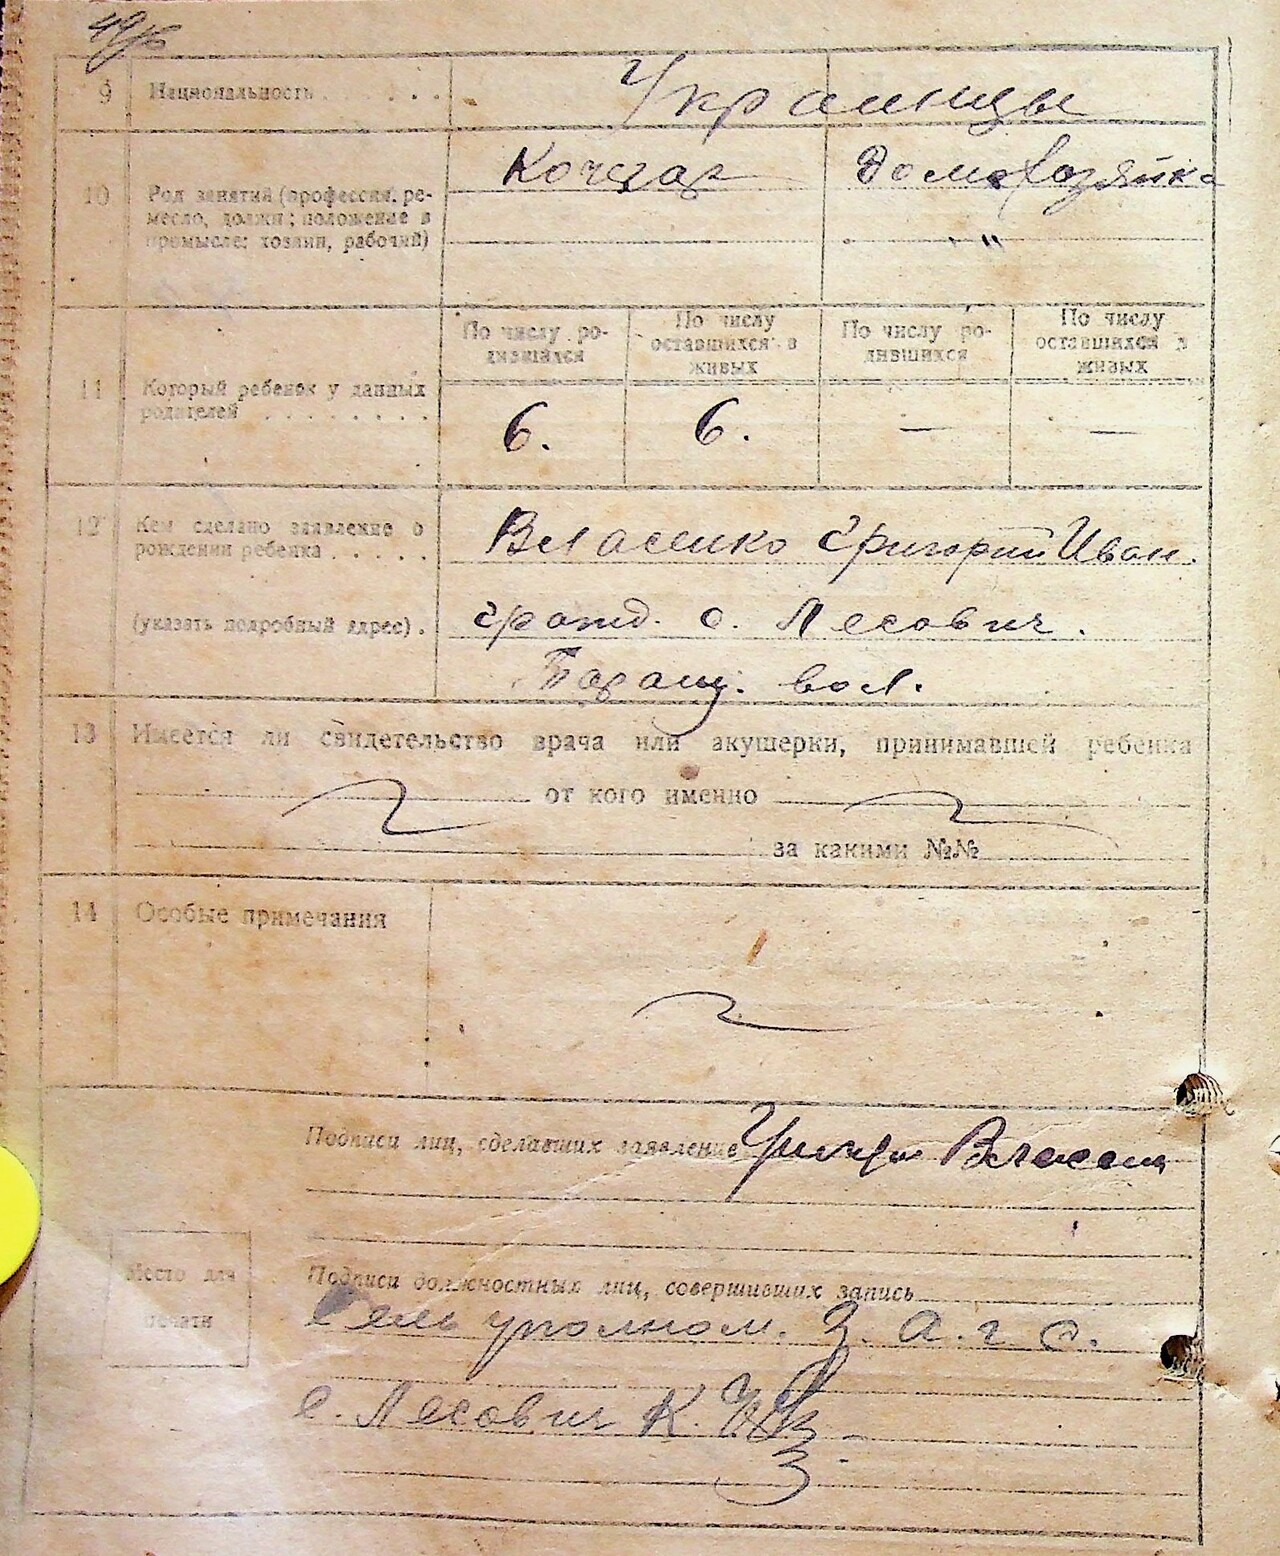 49/б
9 Национальность . . . . Украинцы
10 Род занятий (профессия, ре-
месло, должн; положение в
промысле: хозяин, рабочий)
Кочегар Домохозяйка
"
По числу ро-
дившихся
По числу
оставшихся в
живых
По числу ро-
дившихся
По числу
оставшихся в
живых
11 Который ребенок у данных
родителей . . . . . . . .
6. 6. — —
12 Кем сделано заявление о
рождении ребенка . . . . .
Власенко Григорий Иван.
(указать подробный адрес) . гражд. с. Лесович.
Таращ. вол.
13 Имеется ли свидетельство врача или акушерки, принимавшей ребенка
от кого именно
за какими №№
14 Особые примечания
Подписи лиц, сделавших заявление Григори Власен
Место для
печати
Подписи должностных лиц, совершивших запись
Сель уполном. З. а. г с.
с. Лесович К.